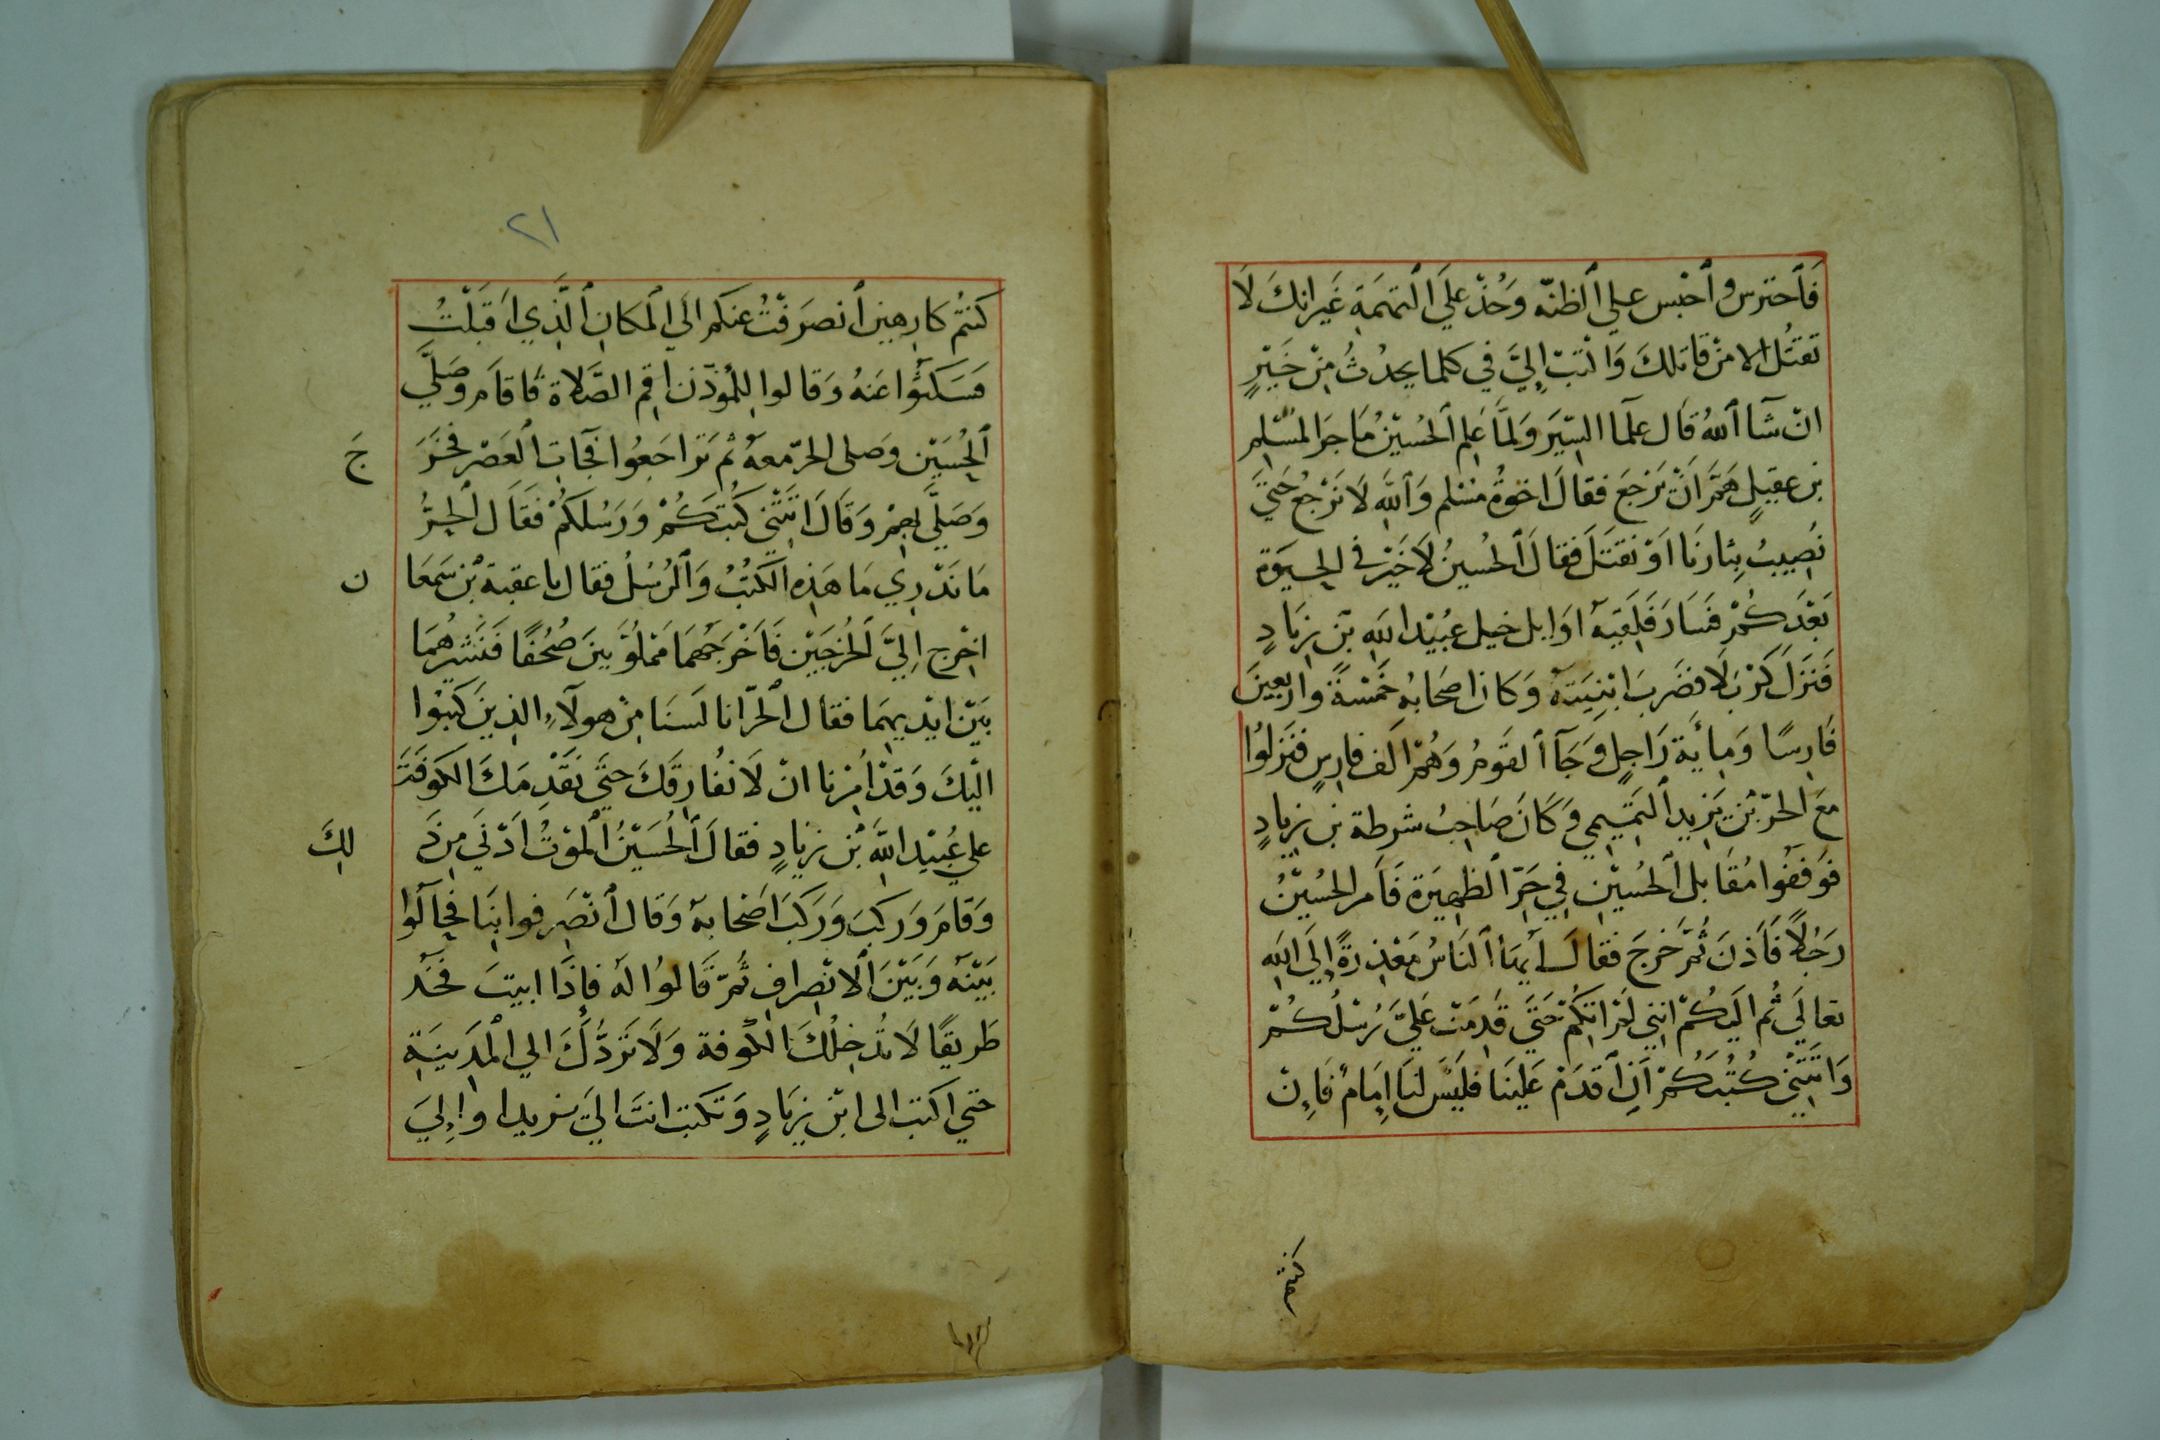 فَاحترس واحْبس على الظنّه وَخُذْ عَلَي التهمَةِ غَيرانكَ لَا
تقتُل الا مَنْ قاتلكَ وَاكْتبْ اِليَّ في كلما يحدُثُ مِنْ خَيْرٍ
انْ شَآ اللهُ قَال عُلَمَا السِّيَر وَلَمَّا عَلِم الحُسَيْنُ مَا جرَا لمُسْلِم
بن عقيلٍ هَمَّ اَنْ يَرْجعَ فقالَ اخوةُ مُسْلم وَاللهِ لَا نَرْجعُ حَتَّي
نُصِيبُ بِثارنَا اوْ نُقتَلَ فقالَ الحُسينُ لَا خَيْرَ في الحيَوة
بَعْدَكُمْ فَسَارَ فَلَقِيَهُ اوَايل خيل عُبيْدِ اللهِ بْن زيَادٍ
فَنَزلَ كَرْبَلَا فضَربَ ابْنِيَتهُ وَكانَ اصحَابهُ خَمْسَةً واربعينَ
فَارِسًا وَمِائَية رَاجِلٍ وَجَآ القَومُ وَهُمْ الف فارِسٍ فنَزلُوا
معَ الحرّ بْن يَزيد التَمِيمي وَكَانَ صَاحِبُ شرطة بن زيادٍ
فوَقفُوا مُقَابل الحُسيْن فِي حَرّ الظهيَرة فَاَمر الحُسيْنُ
رَجُلًا فَاَذنَ ثُمّ خَرجَ فقالَ اَيها النَاسُ مَعْذِرَةً اِلَى اللهِ
تعالَي ثُم اليَكُمْ انِنِي لَمْ اتِكُمْ حَتَّى قدِمَتْ عَليَّ رُسْلُكُمْ
وَاتَتْنِي كُتُبَكُمْ اَنِ اقدَمْ عَليْنَا فلَيسَ لنَا اِمَامٌ فَاِنْ
كنتم
٢١
كنتُم كارهِين انصَرَفْتُ عنكم الَي المكَانِ الَّذِي اَقبَلْتُ
فَسَكتُوا عَنهُ وَقالوا للمُؤذّن اَقِم الصَّلاة فَاَقامَ وَصَلَّي
الحُسَيْن وَصَلى الحرّ معهُ ثُم تَراجَعُوا فجَاتِ العَصْرُ فخَرَ
جَ
وَصَلَّي بهِمْ وَقَالَ اتَتْنِي كُتبَكُمْ وَرَسُلَكمْ فقَال الحُرُّ
مَا نَدْرِي مَا هَذِه الكُتُبُ وَالرُسُلُ فقال يا عقبة بْن سَمْعَا
ن
اخْرج اِليَّ الخُرجَيْن فَاَخْرَجَهُمَا مَمْلُوَّيينَ صُحُفًا فَنَشَرهُمَا
بَيْنَ ايْدِيهِمَا فقال الحُرّ انا لسَنَا مِنْ هولآءِ الذينَ كتبُوا
اليْكَ وَقدْ امُرْنا انْ لَا نُفَارِقَكَ حتَّى نَقْدِمَكَ الكوفَةَ
علي عُبيْد اللهِ بْن زِيادٍ فقالَ الحُسَيْنُ المَوْتُ اَدْنَي مِنْ ذَ
لِكَ
وَقامَ وَركبَ وَركبَ اَصْحابهُ وَقال انْصَرِفوا بِنَا فحَالُوا
بَيْنَهُ وَبَيْنَ الانْصِرافِ ثُمّ قَالوُا لهُ فاِذَا ابيتَ فخُذ
طَريقًا لَا تدُخِلُكَ الكُوفة وَلَا تَردُّكَ الي المَدِينَةِ
حتي اكتب الى ابْن زِيَادٍ وَتكتب انتَ الَيَ يزيد او اِليَ